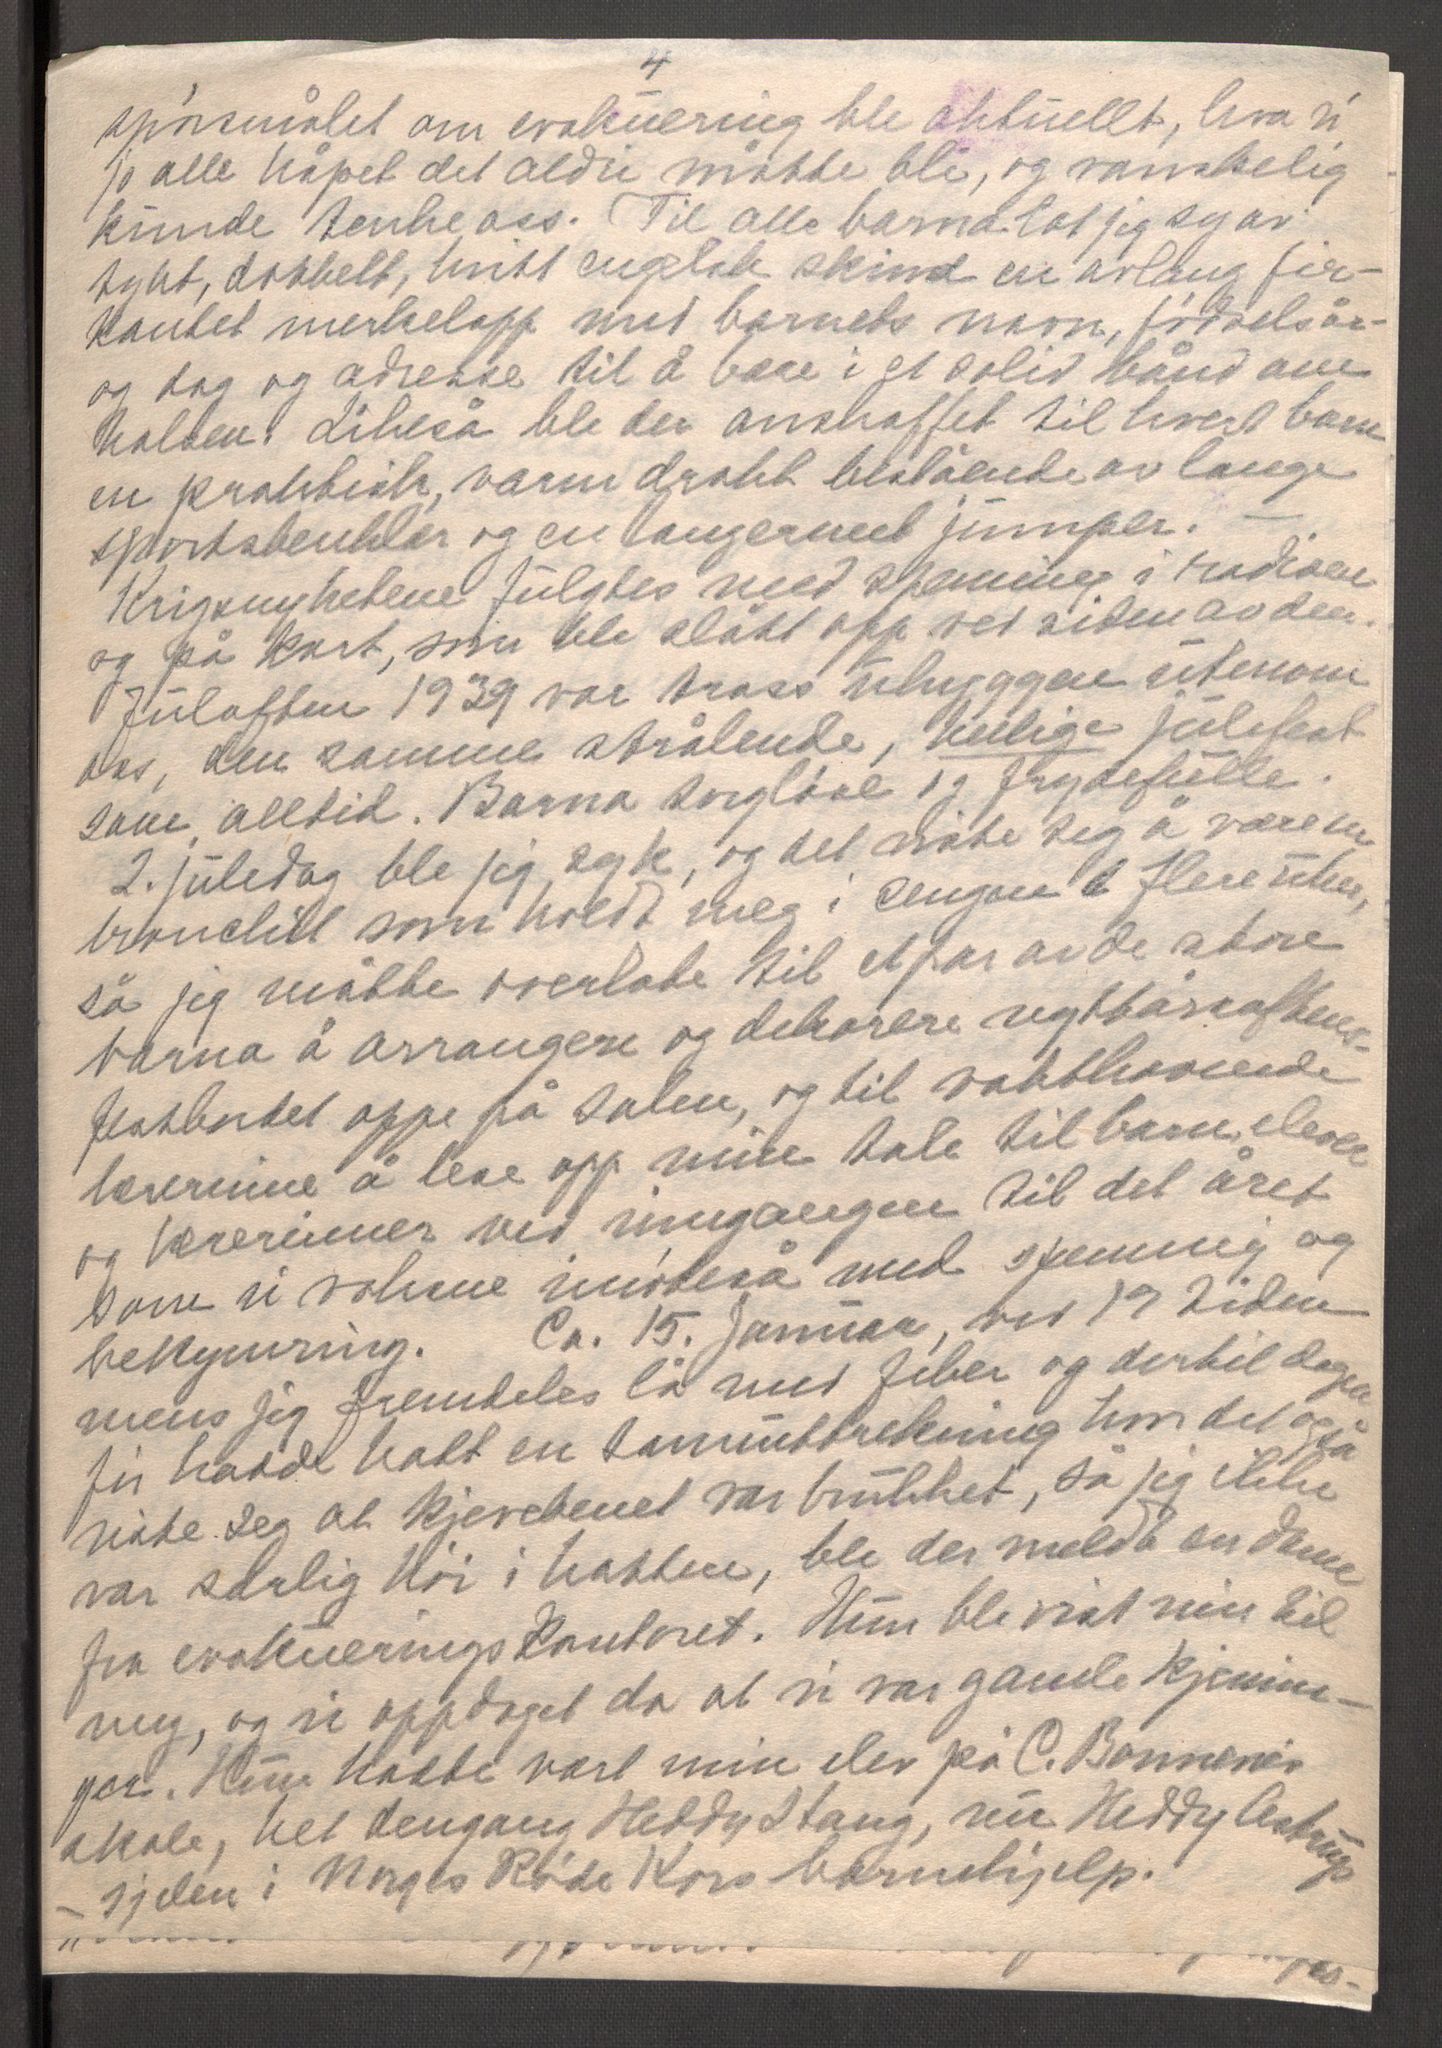 4
spørsmålet om evakuering ble aktuellt, hva vi
jo alle håpet det aldri måtte bli, og vanskelig
kunde tenke oss. Til alle barna lot jeg sy av
tykt, dobbelt, hvitt engelsk skind en avlang fir-
kantet merkelapp med barnets navn, fødselsår-
og dag og adresse til å bære i et solid bånd om
halsen. Likeså ble der anskaffet til hvert barn
en praktisk, varm drakt bestående av lange
sportsbenklær og en langermet jumper. —
Krigsnyhetene fulgtes med spenning i radioen
og på kart, som ble slått opp ved siden av den.
Julaften 1939 var tross uhyggen utenom
oss, den samme strålende, hellige julefest
som alltid. Barna sorgløse og frydefulle.
2. juledag ble jeg syk, og det viste seg å være en
bronchitt som holdt meg i sengen i flere uker,
så jeg måtte overlate til et par av de store
barna å arrangere og dekorere nyttårsaftens-
festbordet oppe på salen, og til vakthavende
lærerinne å lese opp min tale til barn, elever
og lærerinner ved inngangen til det året
som vi voksne imøteså med spenning og
bekymring. Ca. 15. januar, ved 19 tiden
mens jeg fremdeles lå med feber og dertil dagen
før hadde hatt en tannuttrekning hvor det også
viste seg at kjevebenet var brukket, så jeg ikke
var særlig høi i hatten, ble der meldt en dame
fra evakueringskontoret. Hun ble vist inn til
meg, og vi oppdaget da at vi var gamle kjennin-
ger. Hun hadde vært min elev på C. Bonnevies
skole, het dengang Heddy Stang, nu Heddy Astrup
– sjelen i Norges Røde Kors barnehjelp.